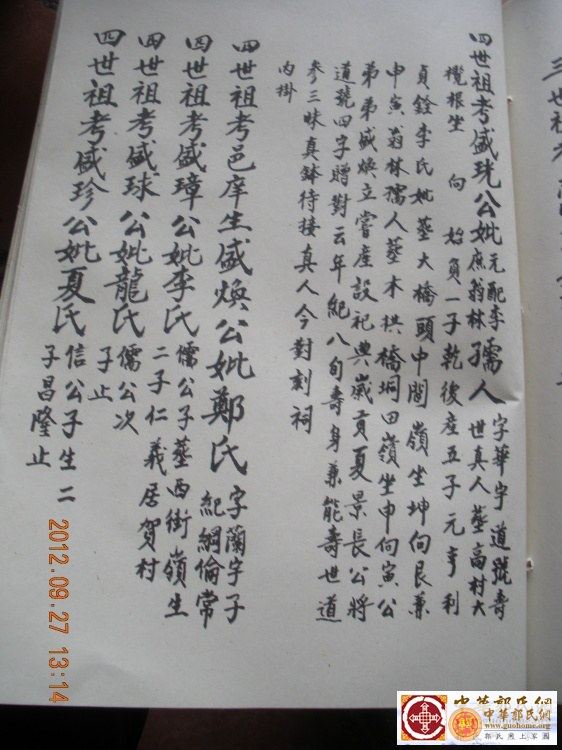 四世祖考盛珖公妣元配李庶翁林孺人字華宇道號壽世真人葬高村大
欖根坐 向 始負一子乾後產五子元亨利
貞銓李氏妣葬大橋頭中間嶺坐坤向艮兼
申寅翁林孺人葬木栱橋垌田嶺坐申向寅公
弟弟盛煥立嘗產設祀典歲貢夏景長公將
道號四字贈對云年紀八旬壽身兼能壽世道
參三昧真鉢待接真人今對刻祠
內掛
四世祖考邑庠生盛煥公妣鄭氏字蘭宇子紀綱倫常
四世祖考盛璋公妣李氏儒公子葬西街嶺生二子仁義居賀村
四世祖考盛球公妣龍氏儒公次子止
四世祖考盛珍公妣夏氏信公子生二子昌隆止
2012.09.27 13:14
中華郭氏網
中華郭氏網
www.guohome.org
郭氏網上家園